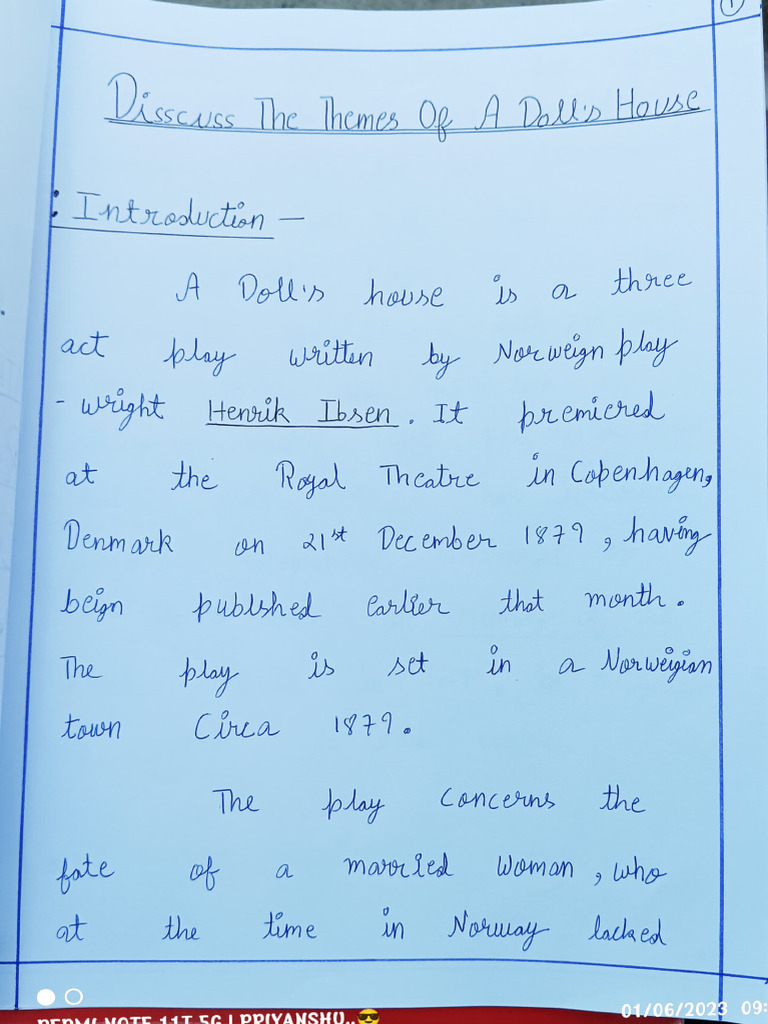 1
Disscuss The Themes Of A Doll's House
: Introduction —
A Doll's house is a three
act play written by Norweign play
- wright Henrik Ibsen. It premiered
at the Royal Theatre in Copenhagen,
Denmark on 21st December 1879, having
beign publshed earlier that month.
The play is set in a Norweigian
town Circa 1879.
The play concerns the
fate of a married woman, who
at the time in Norway lacked
REDMI NOTE 11T 5G | PRIYANSHU..😎
01/06/2023 09: